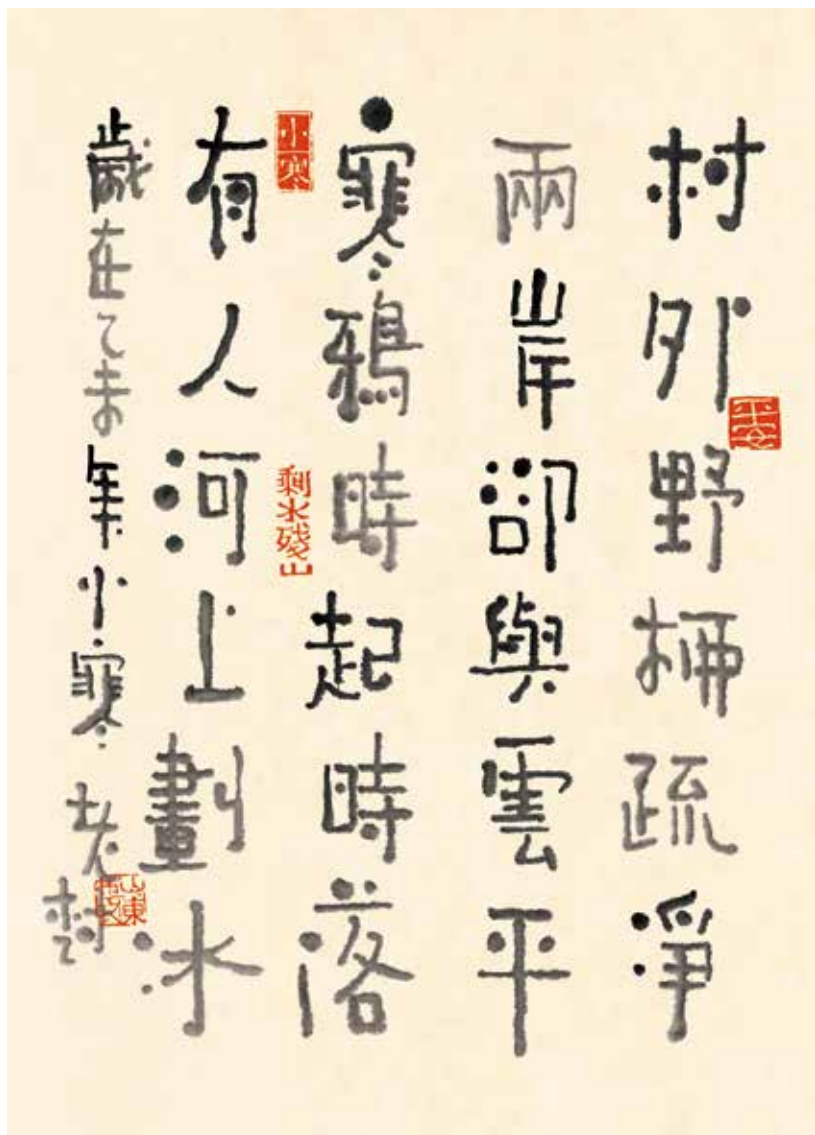 村外野桺疏凈
兩岸卻與雲平
寒鴉時起時落
有人河上劃冰
歲在乙未年小寒 老樹
平安
小寒
剩水殘山
山東